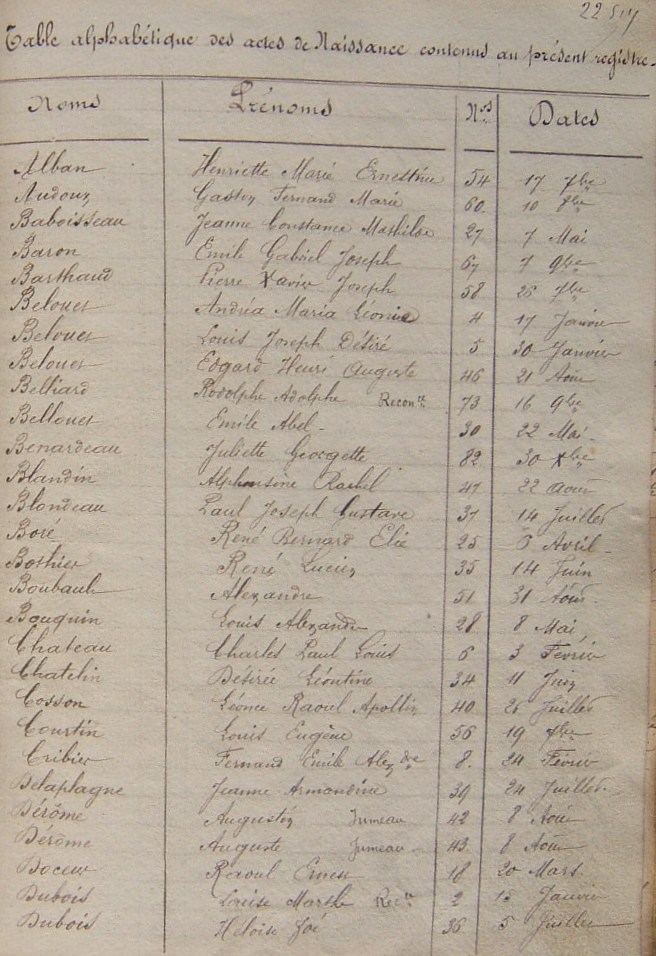 Table alphabétique des actes de Naissance contenus au présent registre.
Noms Prénoms Nos Dates
Alban Henriette Marie Ernestine 54 17 7bre
Audoux Gaston Fernand Marie 60 10 8bre
Baboisseau Jeanne Constance Mathilde 27 7 Mai
Baron Emile Gabriel Joseph 67 7 9bre
Barthaud Pierre Xavier Joseph 58 26 7bre
Belouet Andréa Maria Léonie 4 17 Janvier
Belouet Louis Joseph Désiré 5 30 Janvier
Belouet Edgard Henri Auguste 46 21 Août
Belliard Rodolphe Adolphe Reconce 73 16 9bre
Bellouet Emile Abel 30 22 Mai
Benardeau Juliette Georgette 82 30 Xbre
Blandin Alphonsine Rachel 47 22 août
Blondeau Paul Joseph Gustave 37 14 Juillet
Boré René Bernard Elie 25 Avril
Bothier René Lucien 35 14 Juin
Boubault Alexandre 51 31 Août
Bouquin Louis Alexandre 28 8 Mai
Chateau Charles Paul Louis 6 3 Février
Chatelin Désirée Léontine 34 11 Juin
Cosson Léonce Raoul Apollin 40 Juillet
Courtin Louis Eugène 56 19 7bre
Cribier Fernand Emile Alexdre 8 24 Février
Delaplagne Jeanne Armandine 39 24 Juillet
Dérôme Augustin Jumeau 42 8 Août
Dérôme Auguste Jumeau 43 8 Août
Doceur Raoul Ernest 18 20 Mars
Dubois Louise Marthe Recce 2 Janvier
Dubois Héloise Zoé 36 5 Juillet